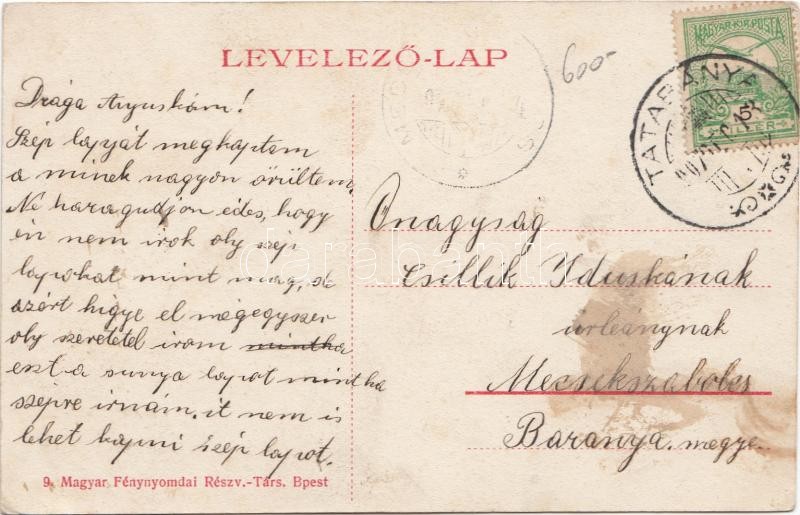 LEVELEZŐ-LAP
600-
Drága Anyuskám!
Szép lapját megkaptam
a minek nagyon örültem
Ne haragudjon édes, hogy
én nem irok oly szép
lapokat mint mag, de
azért higye el mégegyszer
oly szeretetel irom mintha
ezt a sunya lapot mintha
szépre irnám, it nem is
lehet kapni szép lapot.
9. Magyar Fénynyomdai Részv.-Társ. Bpest
MAGYAR·KIR·POSTA
5
FILLÉR
TATABÁNYA
Őnagyság
Csillik Iduskának
úrleánynak
Mecsekszabolcs
Baranya. megye.
darabanth